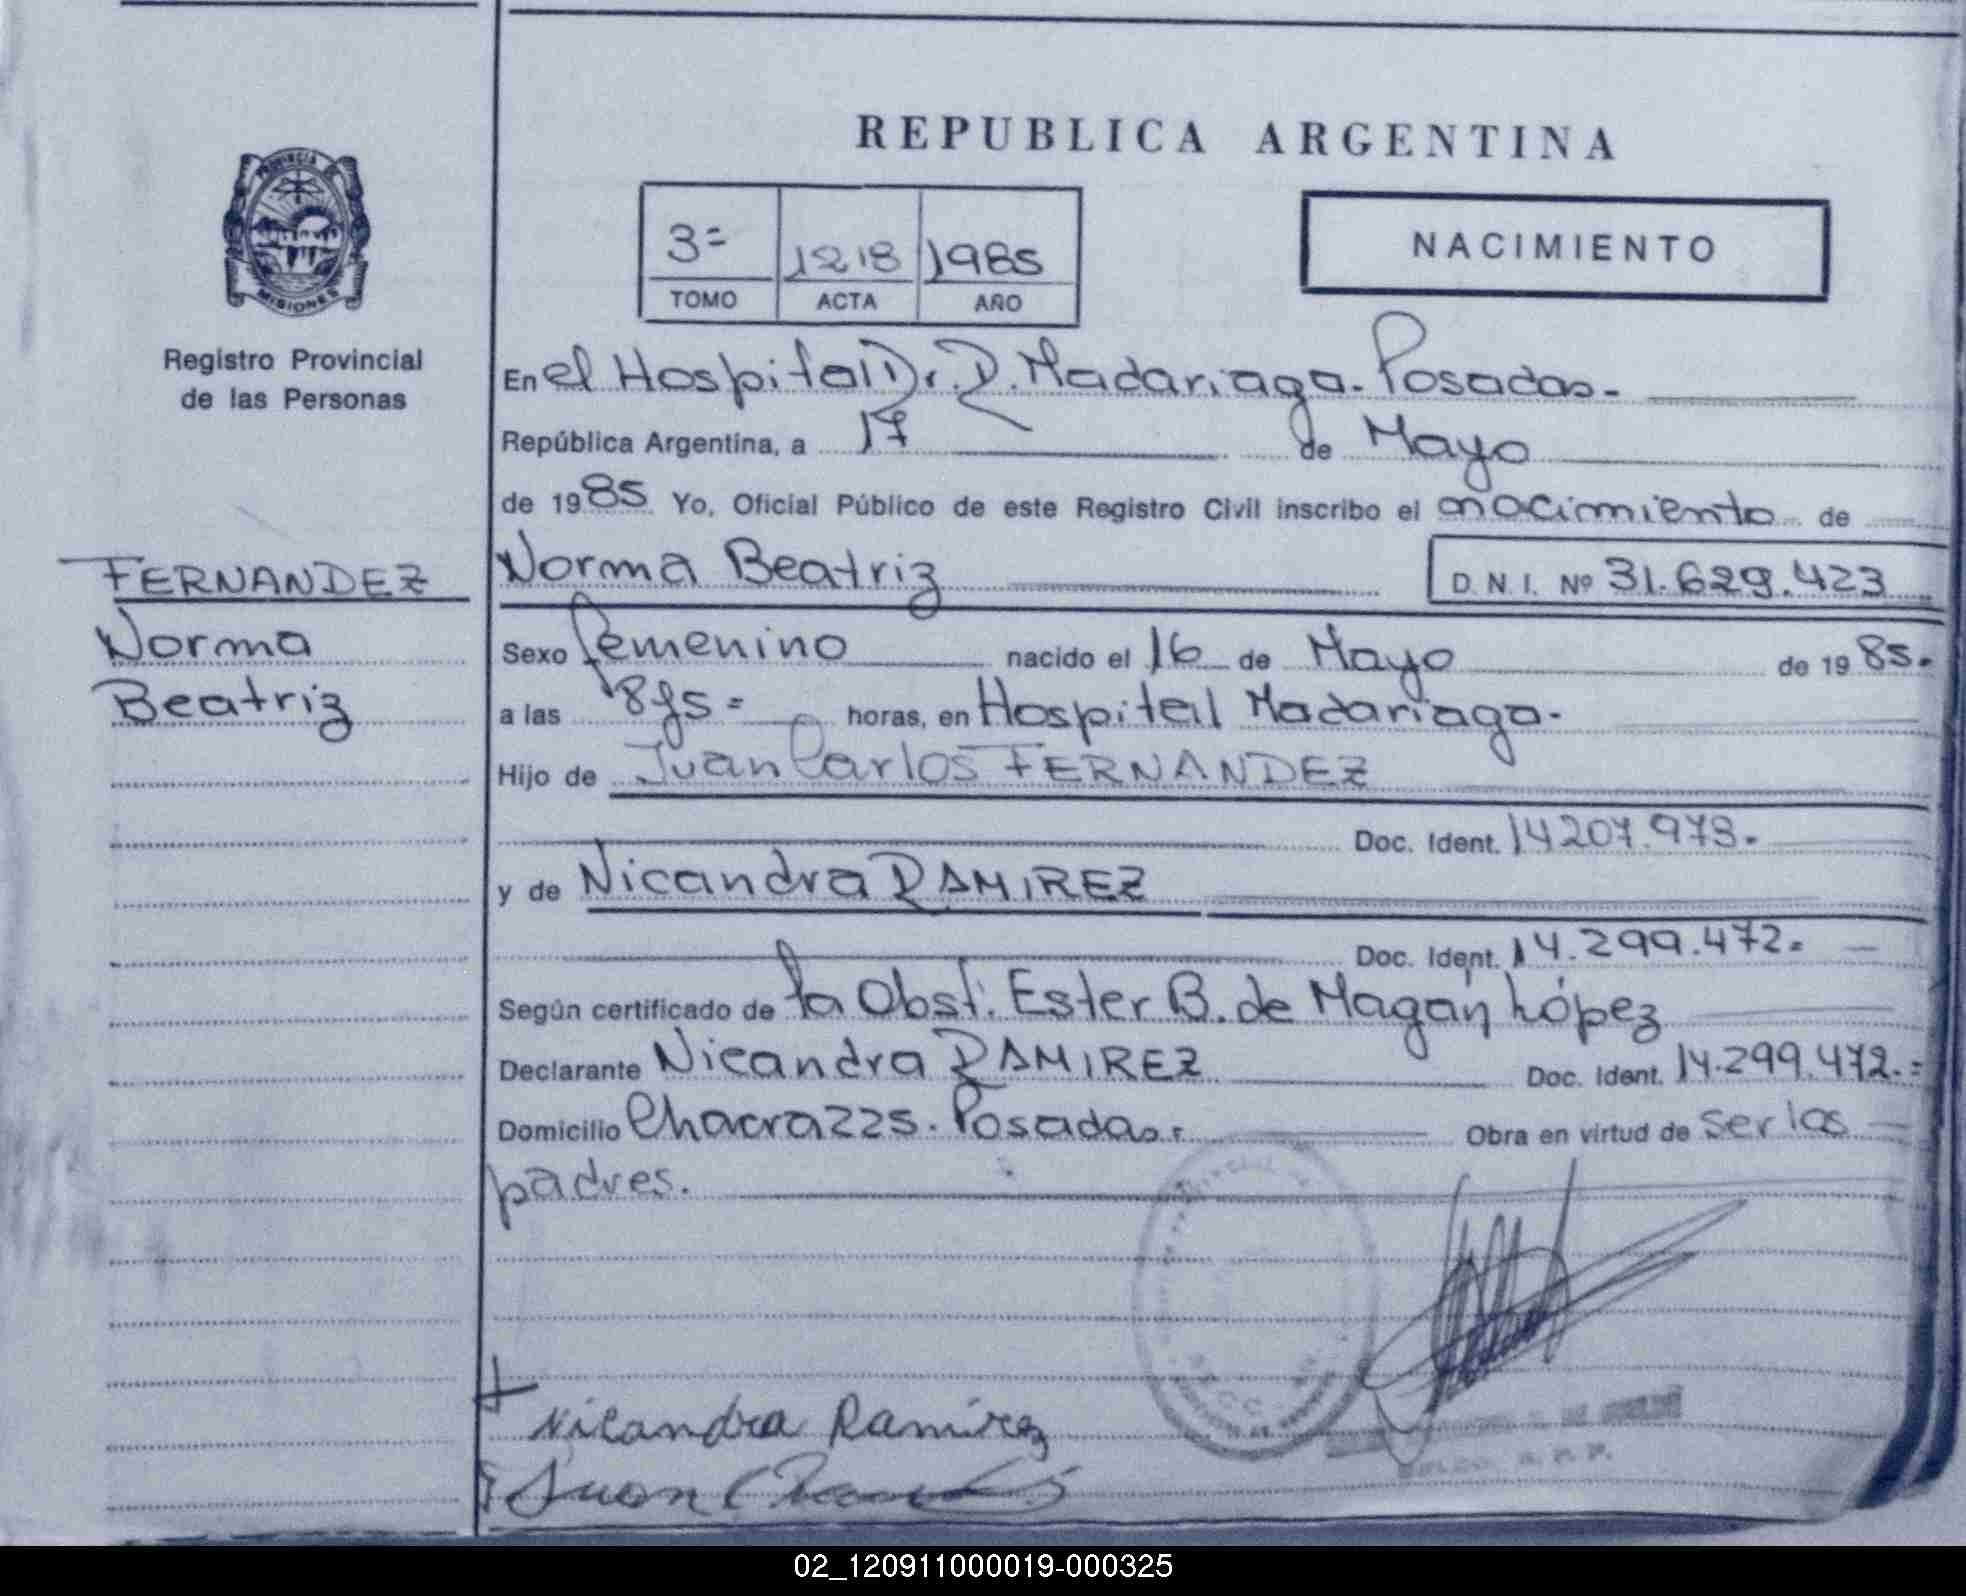 REPUBLICA ARGENTINA
PROVINCIA DE
MISIONES
Registro Provincial
de las Personas
3=
1218
1985
TOMO
ACTA
AÑO
NACIMIENTO
En el Hospital Dr. R. Madariaga. Posadas.
República Argentina, a 17 de Mayo
de 1985 Yo, Oficial Público de este Registro Civil inscribo el nacimiento de
Norma Beatriz D. N. I. Nº 31.629.423
FERNANDEZ
Norma
Beatriz
Sexo femenino nacido el 16 de Mayo de 1985.
a las horas, en Hospital Madariaga.
Hijo de Juan Carlos FERNANDEZ
Doc. Ident. 14207.973.
y de Nicandra RAMIREZ
Doc. Ident. 14.299.472=
Según certificado de la Obst. Ester B. de Magán López
Declarante Nicandra RAMIREZ Doc. Ident. 14.299.472.=
Domicilio Chacra 225. Posadas. Obra en virtud de ser los
padres.
Nicandra Ramirez
Juan
02_120911000019-000325